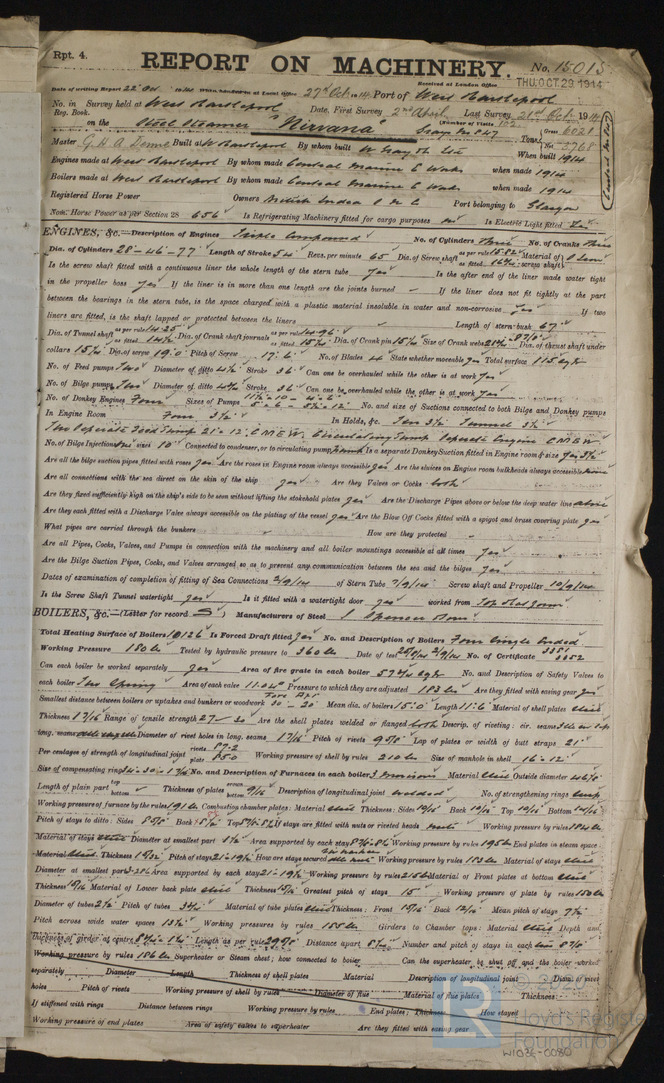 Rpt. 4.
REPORT ON MACHINERY.
No. 15015
Received at London Office THU. OCT. 29 1914
Date of writing Report 22 Oct. 1914 When handed in at Local Office 27th Oct. 1914 Port of West Hartlepool
No. in Survey held at West Hartlepool Date, First Survey 2nd April Last Survey 21st Oct. 1914
Reg. Book. (Number of Visits 102)
on the Steel Steamer "Nirvana" Tons Gross 6021 Net 3768
Master G. H. A. Denne Built at W. Hartlepool By whom built W. Gray & Co. Ltd When built 1914
Engines made at West Hartlepool By whom made Central Marine E. Wks when made 1914
Boilers made at West Hartlepool By whom made Central Marine E. Wks when made 1914
Registered Horse Power Owners British India S. N. Co Port belonging to Glasgow
Nom. Horse Power as per Section 28 656 Is Refrigerating Machinery fitted for cargo purposes no Is Electric Light fitted Yes
ENGINES, &c.—Description of Engines Triple Compound No. of Cylinders Three No. of Cranks Three
Dia. of Cylinders 28-46-77 Length of Stroke 54 Revs. per minute 65 Dia. of Screw shaft as per rule 15.82 as fitted 16 3/4 Material of screw shaft
Is the screw shaft fitted with a continuous liner the whole length of the stern tube yes Is the after end of the liner made water tight
in the propeller boss yes If the liner is in more than one length are the joints burned If the liner does not fit tightly at the part
between the bearings in the stern tube, is the space charged with a plastic material insoluble in water and non-corrosive yes If two
liners are fitted, is the shaft lapped or protected between the liners Length of stern bush 67"
Dia. of Tunnel shaft as per rule 14.25 as fitted Dia. of Crank shaft journals as per rule 14.96 as fitted 15 7/16 Dia. of Crank pin 15 7/16 Size of Crank webs Dia. of thrust shaft under
collars 15 7/16 Dia. of screw 19.0 Pitch of Screw 17.6 No. of Blades 4 State whether moveable yes Total surface 115 sq ft
No. of Feed pumps Two Diameter of ditto 4 1/2 Stroke 36 Can one be overhauled while the other is at work yes
No. of Bilge pumps Two Diameter of ditto 4 3/4 Stroke 36 Can one be overhauled while the other is at work yes
No. of Donkey Engines Four Sizes of Pumps No. and size of Suctions connected to both Bilge and Donkey pumps
In Engine Room Four 3 1/2" In Holds, &c. Ten 3 1/2 Tunnel 3 1/2
Two Separate Feed Pumps 21 x 12. C.M.E.W. Circulating Pump Separate Engine C.M.E.W.
No. of Bilge Injections one sizes 10 Connected to condenser, or to circulating pump pump Is a separate Donkey Suction fitted in Engine room & size yes 3 1/2
Are all the bilge suction pipes fitted with roses yes Are the roses in Engine room always accessible yes Are the sluices on Engine room bulkheads always accessible none
Are all connections with the sea direct on the skin of the ship yes Are they Valves or Cocks both
Are they fixed sufficiently high on the ship's side to be seen without lifting the stokehold plates yes Are the Discharge Pipes above or below the deep water line above
Are they each fitted with a Discharge Valve always accessible on the plating of the vessel yes Are the Blow Off Cocks fitted with a spigot and brass covering plate yes
What pipes are carried through the bunkers How are they protected
Are all Pipes, Cocks, Valves, and Pumps in connection with the machinery and all boiler mountings accessible at all times yes
Are the Bilge Suction Pipes, Cocks, and Valves arranged so as to prevent any communication between the sea and the bilges yes
Dates of examination of completion of fitting of Sea Connections 2/9/14 of Stern Tube 7/9/14 Screw shaft and Propeller 10/9/14
Is the Screw Shaft Tunnel watertight yes Is it fitted with a watertight door yes worked from Top Platform
BOILERS, &c.—(Letter for record S) Manufacturers of Steel J. Spencer & Sons
Total Heating Surface of Boilers 10126 Is Forced Draft fitted yes No. and Description of Boilers Four Single Ended
Working Pressure 180 lb Tested by hydraulic pressure to 360 lb Date of test No. of Certificate 3351 3352
Can each boiler be worked separately yes Area of fire grate in each boiler No. and Description of Safety Valves to
each boiler Two Spring Area of each valve 11.04 Pressure to which they are adjusted 183 lb Are they fitted with easing gear yes
Smallest distance between boilers or uptakes and bunkers or woodwork Mean dia. of boilers 15.0 Length 11.6 Material of shell plates Steel
Thickness 1 7/16 Range of tensile strength 27-30 Are the shell plates welded or flanged both Descrip. of riveting: cir. seams
long. seams Diameter of rivet holes in long. seams 1 7/16 Pitch of rivets 9 5/8 Lap of plates or width of butt straps 21"
Per centages of strength of longitudinal joint rivets 89.2 plate 85.0 Working pressure of shell by rules 210 lb Size of manhole in shell 16 x 12
Size of compensating ring No. and Description of Furnaces in each boiler 3 Morisons Material Steel Outside diameter
Length of plain part top bottom Thickness of plates crown bottom 9/16 Description of longitudinal joint welded No. of strengthening rings
Working pressure of furnace by the rules 191 lb Combustion chamber plates: Material Steel Thickness: Sides 10/16 Back 10/16 Top 10/16 Bottom 10/16
Pitch of stays to ditto: Sides Back Top If stays are fitted with nuts or riveted heads nuts Working pressure by rules
Material of stays Steel Diameter at smallest part Area supported by each stay Working pressure by rules 195 lb End plates in steam space
Material Steel Thickness Pitch of stays How are stays secured Working pressure by rules 183 lb Material of stays Steel
Diameter at smallest part Area supported by each stay Working pressure by rules Material of Front plates at bottom Steel
Thickness Material of Lower back plate Steel Thickness Greatest pitch of stays 15 Working pressure of plate by rules
Diameter of tubes 2 1/2 Pitch of tubes 3 3/4 Material of tube plates Steel Thickness: Front 15/16 Back 12/16 Mean pitch of stays 7 1/2
Pitch across wide water spaces 13 1/2 Working pressures by rules Girders to Chamber tops: Material Steel Depth and
thickness of girder at centre Length as per rule Distance apart Number and pitch of stays in each
Working pressure by rules Superheater or Steam chest; how connected to boiler Can the superheater be shut off and the boiler worked
separately Diameter Length Thickness of shell plates Material Description of longitudinal joint Diam. of rivet
holes Pitch of rivets Working pressure of shell by rules Diameter of flue Material of flue plates Thickness
If stiffened with rings Distance between rings Working pressure by rules End plates: Thickness How stayed
Working pressure of end plates Area of safety valves to superheater Are they fitted with easing gear
© 2020
Lloyd's Register
Foundation
W1036-0080